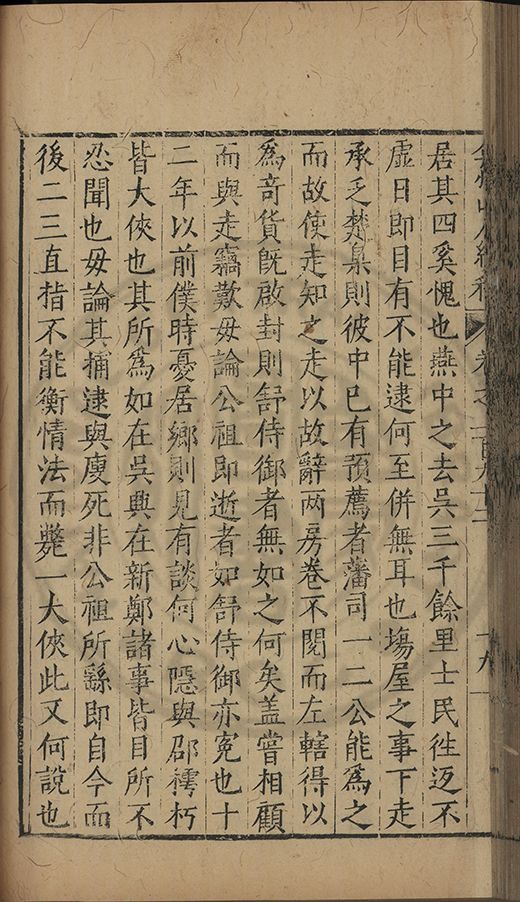 居其四奚愧也燕中之去吳三千餘里士民徃返不
虛日即目有不能逮何至併無耳也塲屋之事下走
承乏楚臬則彼中已有預薦者藩司一二公能為之
而故使走知之走以故辭两房卷不閱而左轄得以
為奇貨旣啟封則舒侍御者無如之何矣盖嘗相顧
而與走竊歎毋論公祖即逝者如舒侍御亦寃也十
二年以前僕時憂居鄉則見有談何心隱與邵樗朽
皆大俠也其所為如在吳興在新鄭諸事皆目所不
忍聞也毋論其捕逮與庾死非公祖所繇即自今而
後二三直指不能衡情法而斃一大俠此又何說也